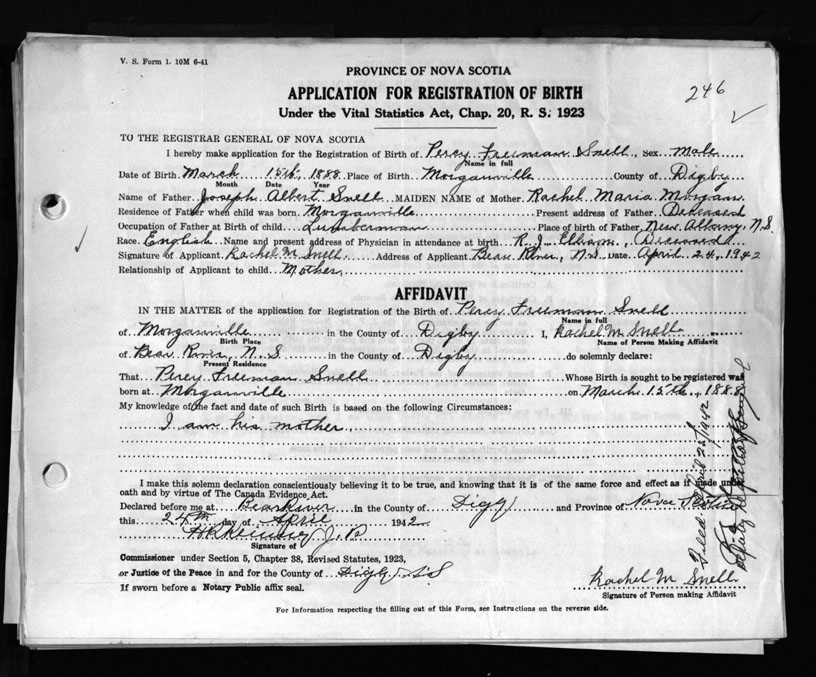 V. S. Form 1. 10M 6-41
246
PROVINCE OF NOVA SCOTIA
APPLICATION FOR REGISTRATION OF BIRTH
Under the Vital Statistics Act, Chap. 20, R. S. 1923
TO THE REGISTRAR GENERAL OF NOVA SCOTIA
I hereby make application for the Registration of Birth of Percy Freeman Snell, Sex Male
Name in full
Date of Birth March 15th, 1888 Place of Birth Morganville County of Digby
Month Date Year
Name of Father Joseph Albert Snell MAIDEN NAME of Mother Rachel Maria Morgan
Residence of Father when child was born Morganville Present address of Father Deceased
Occupation of Father at Birth of child Lumberman Place of birth of Father New Albany, N.S.
Race English Name and present address of Physician in attendance at birth R. J. Ellison, Deceased
Signature of Applicant Rachel M Snell Address of Applicant Bear River, N.S. Date April 24, 1942
Relationship of Applicant to child Mother
AFFIDAVIT
IN THE MATTER of the application for Registration of the Birth of Percy Freeman Snell
Name in full
of Morganville in the County of Digby I, Rachel M Snell
Birth Place Name of Person Making Affidavit
of Bear River, N. S in the County of Digby do solemnly declare:
Present Residence
That Percy Freeman Snell Whose Birth is sought to be registered was
born at Morganville on March 15th, 1888
My knowledge of the fact and date of such Birth is based on the following Circumstances:
I am his mother
I make this solemn declaration conscientiously believing it to be true, and knowing that it is of the same force and effect as if made under
oath and by virtue of The Canada Evidence Act.
Declared before me at Bear River in the County of Digby and Province of Nova Scotia
this 24th day of April 1942
J. P
Signature of
Commissioner under Section 5, Chapter 38, Revised Statutes, 1923,
or Justice of the Peace in and for the County of Digby N S
If sworn before a Notary Public affix seal.
Rachel M Snell
Signature of Person making Affidavit
For Information respecting the filling out of this Form, see Instructions on the reverse side.
Filed April 25/1942
Deputy Registrar General